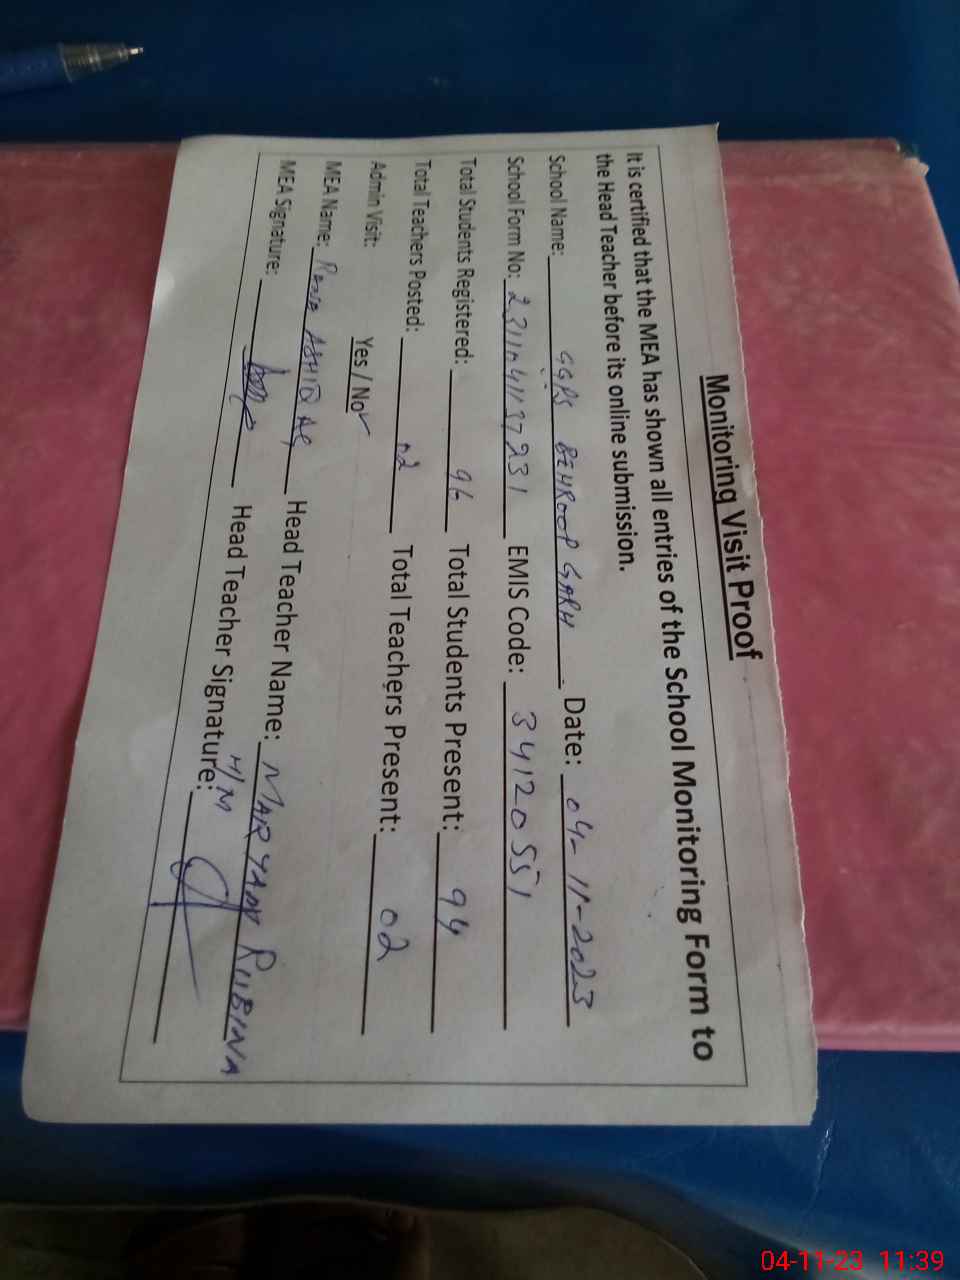 Monitoring Visit Proof
It is certified that the MEA has shown all entries of the School Monitoring Form to
the Head Teacher before its online submission.
School Name: GGPS BEHROOP GARH Date: 04-11-2023
School Form No: 2311041137231 EMIS Code: 34120551
Total Students Registered: 96 Total Students Present: 94
Total Teachers Posted: 02 Total Teachers Present: 02
Admin Visit: Yes / No ✓
MEA Name: Rana ASHIQ Head Teacher Name: MARYAM RUBINA
MEA Signature: Head Teacher Signature: H/M
04-11-23 11:39